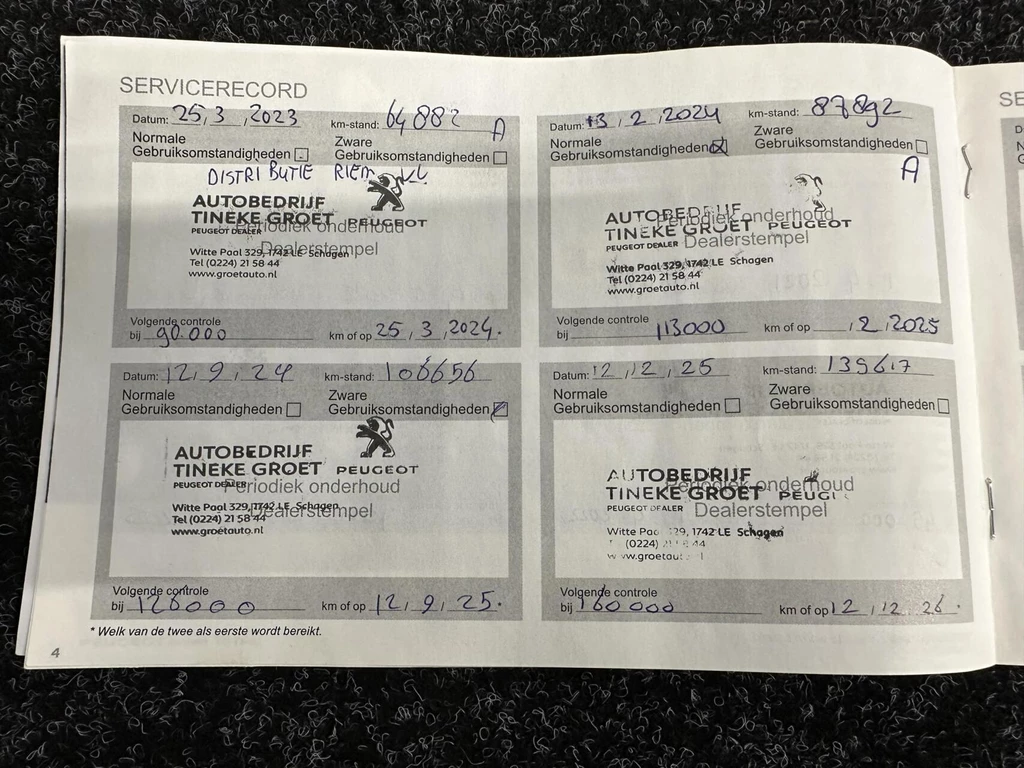 SERVICERECORD
Datum: 25,3,2023 km-stand: 64882
A
Normale Gebruiksomstandigheden
Zware Gebruiksomstandigheden
DISTRIBUTIE RIEM
AUTOBEDRIJF
TINEKE GROET PEUGEOT
Periodiek onderhoud
PEUGEOT DEALER
Dealerstempel
Witte Paal 329, 1742 LE Schagen
Tel (0224) 21 58 44
www.groetauto.nl
Volgende controle
bij 90.000 km of op 25,3,2024.
Datum: 13,2,2024 km-stand: 87892
Normale Gebruiksomstandigheden
Zware Gebruiksomstandigheden
A
AUTOBEDRIJF
Periodiek onderhoud
TINEKE GROET PEUGEOT
PEUGEOT DEALER Dealerstempel
Witte Paal 329, 1742 LE Schagen
Tel (0224) 21 58 44
www.groetauto.nl
Volgende controle
bij 113000 km of op ,2,2025
Datum: 12,9,24 km-stand: 106656
Normale Gebruiksomstandigheden
Zware Gebruiksomstandigheden
AUTOBEDRIJF
TINEKE GROET PEUGEOT
PEUGEOT DEALER
Periodiek onderhoud
Witte Paal 329, 1742 LE Schagen
Dealerstempel
Tel (0224) 21 58 44
www.groetauto.nl
Volgende controle
bij 126000 km of op 12,9,25.
Datum: 12,12,25 km-stand: 139617
Normale Gebruiksomstandigheden
Zware Gebruiksomstandigheden
AUTOBEDRIJF
Periodiek onderhoud
TINEKE GROET PEUG
PEUGEOT DEALER Dealerstempel
Witte Paa 29, 1742 LE Schagen
(0224) 44
www.groetau
Volgende controle
bij 160000 km of op 12,12,26.
* Welk van de twee als eerste wordt bereikt.
4
SE